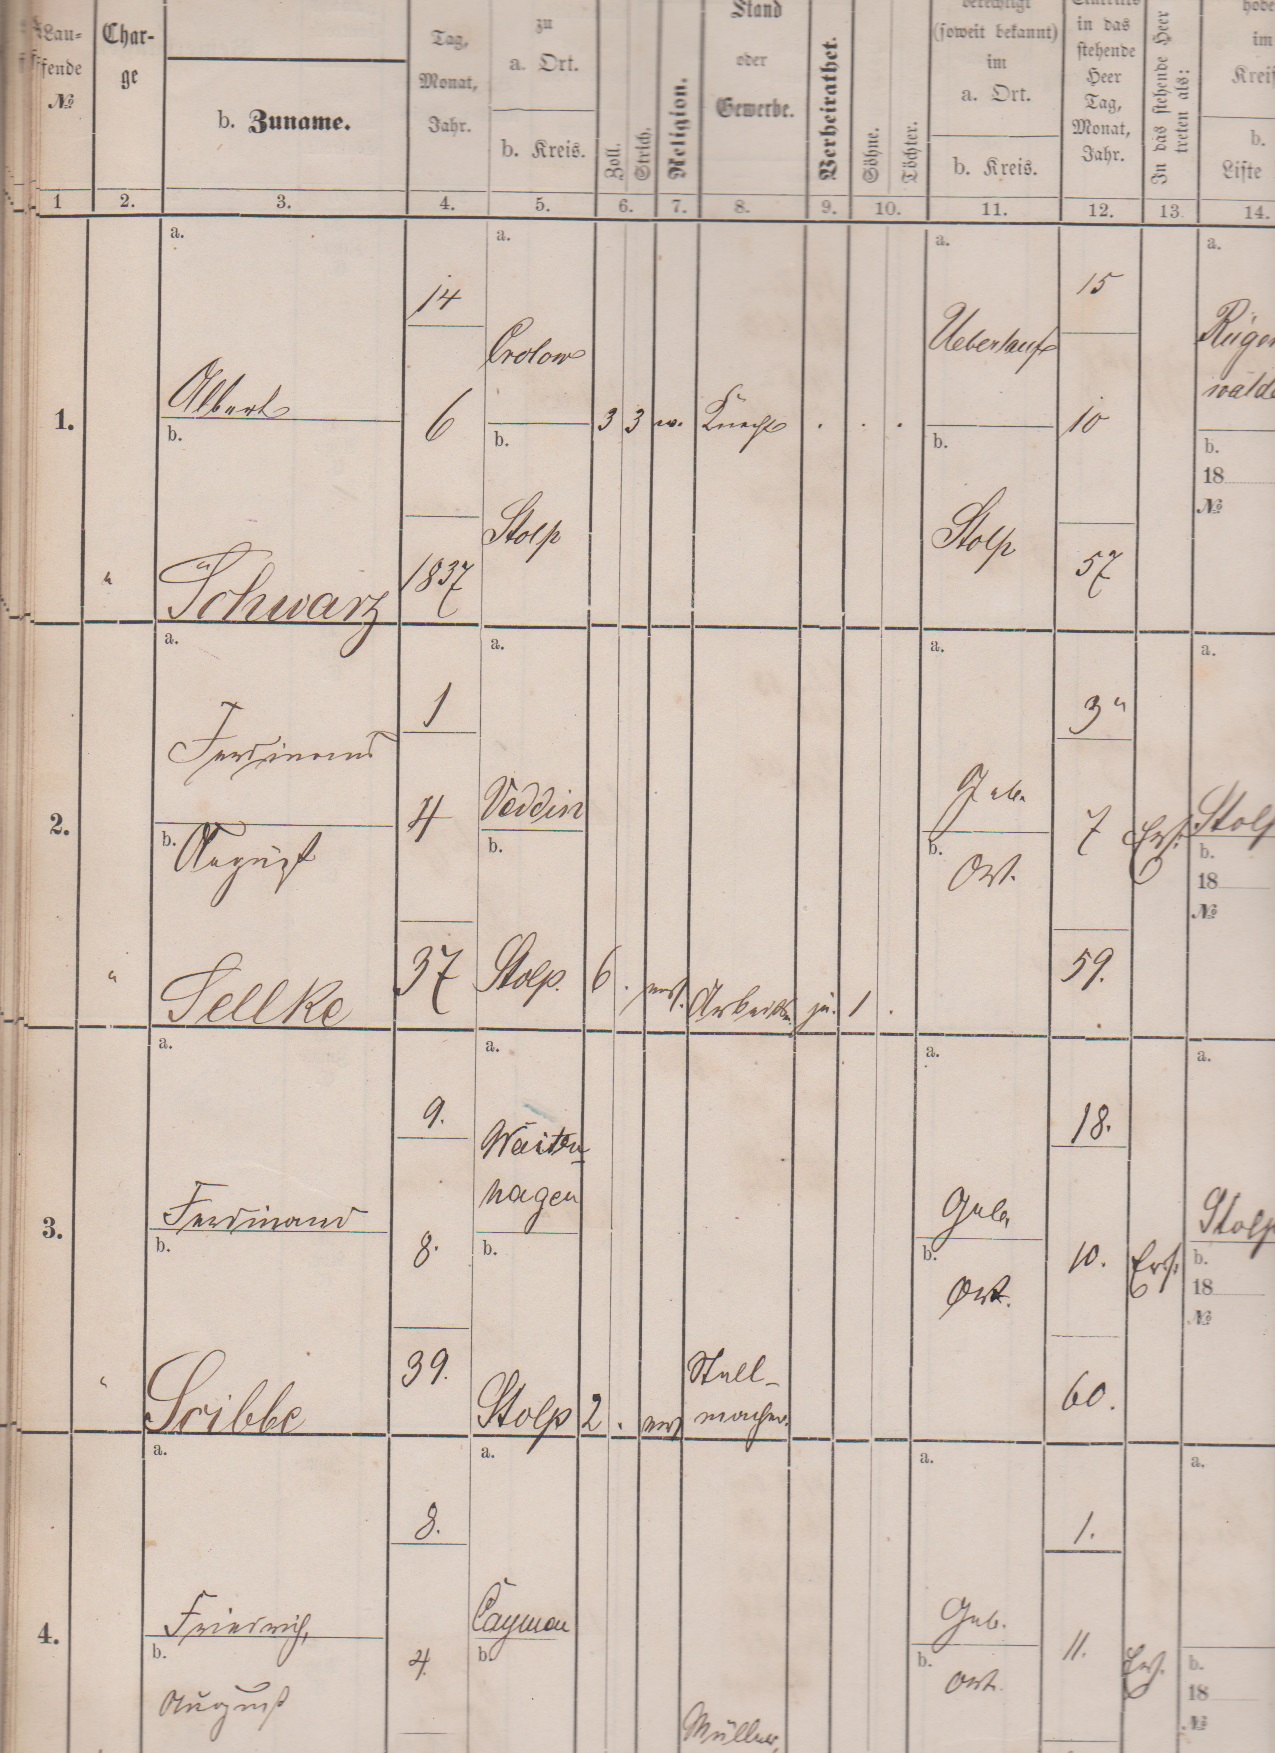 Lau-
fende
№
Char-
ge
b. Zuname.
Tag,
Monat,
Jahr.
zu
a. Ort.
b. Kreis.
Zoll.
Strich.
Religion.
Stand
oder
Gewerbe.
Verheirathet.
Söhne.
Töchter.
berechtigt
(soweit bekannt)
im
a. Ort.
b. Kreis.
Eintritts
in das
stehende
Heer
Tag,
Monat,
Jahr.
In das stehende Heer
treten als:
im
Kreis
b.
Liste
1 2. 3. 4. 5. 6. 7. 8. 9. 10. 11. 12. 13. 14.
1.
a.
Albert
b.
Schwarz
14
6
1837
a.
Crolow
b.
Stolp
3 3 Knecht . . .
a.
Ueberlauf
b.
Stolp
15
10
57
a.
Rügen
walde
b.
18
№
2.
a.
Ferdinand
b. August
Sellke
1
4
37
a.
Veddin
b.
Stolp. 6 . 1 .
a.
Geb.
b.
Ort.
3
7
59.
Ers.
a.
Stolp
b.
18
№
3.
a.
Ferdinand
b.
Scribbe
9.
8.
39.
a.
hagen
b.
Stolp 2 .
Stell-
macher.
a.
Geb.
b.
Ort.
18.
10.
60.
Ers.
a.
Stolp
b.
18
№
4.
a.
Friedrich,
b.
August
8.
4.
a.
b.
Müller,
a.
Geb.
b.
Ort.
1.
11.
Ers.
a.
b.
18
№